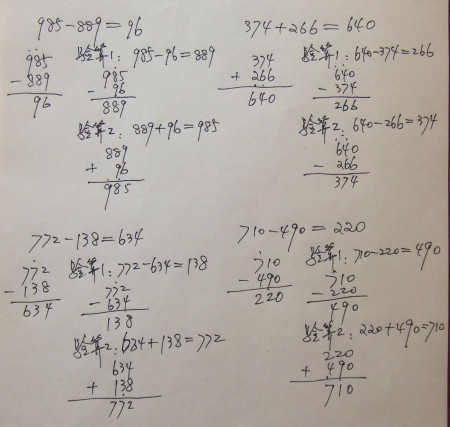 985-889=96
985
-889
96
验算1: 985-96=889
985
-96
889
验算2: 889+96=985
889
+96
985
374+266=640
374
+266
640
验算1: 640-374=266
640
-374
266
验算2: 640-266=374
640
-266
374
772-138=634
772
-138
634
验算1: 772-634=138
772
-634
138
验算2: 634+138=772
634
+138
772
710-490=220
710
-490
220
验算1: 710-220=490
710
-220
490
验算2: 220+490=710
220
+490
710